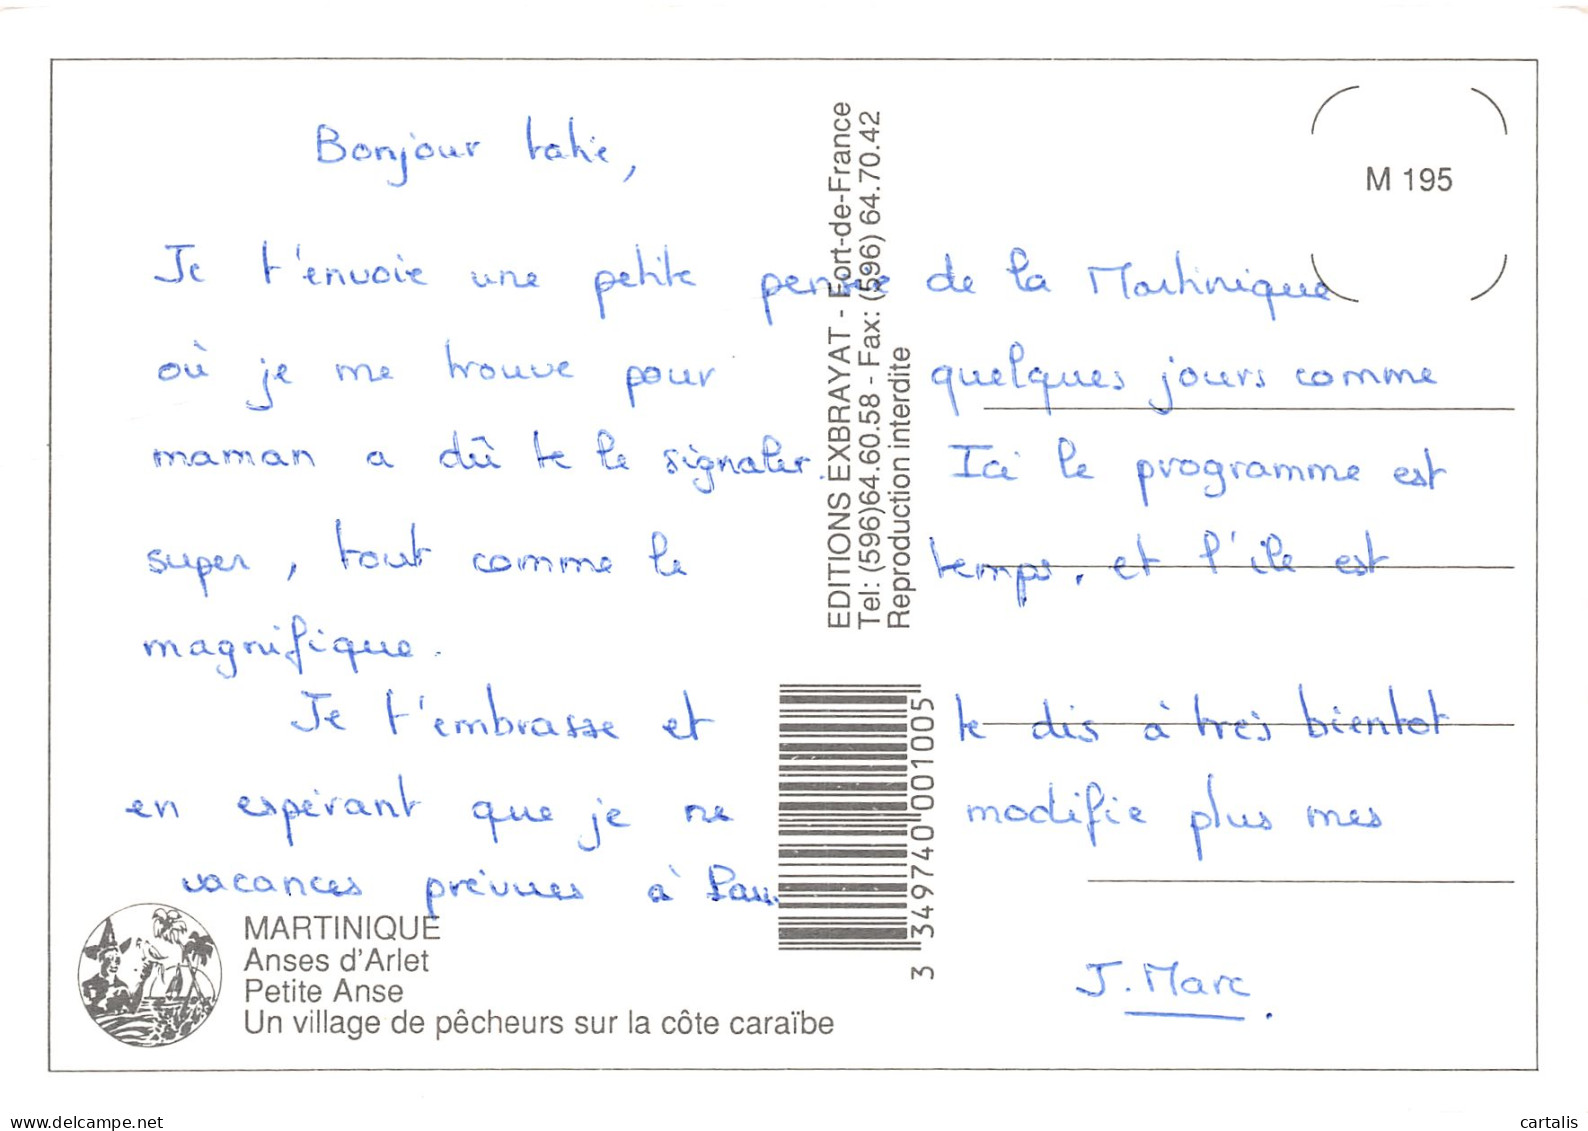 Bonjour tatie,
Je t'envoie une petite pensée de la Martinique
où je me trouve pour quelques jours comme
maman a dû te le signaler. Ici le programme est
super, tout comme le temps, et l'île est
magnifique.
Je t'embrasse et te dis à très bientot
en espérant que je ne modifie plus mes
vacances prévues à Pau.
J. Marc.
M 195
EDITIONS EXBRAYAT - Fort-de-France
Tel: (596)64.60.58 - Fax: (596) 64.70.42
Reproduction interdite
3 349740 001005
MARTINIQUE
Anses d'Arlet
Petite Anse
Un village de pêcheurs sur la côte caraïbe
www.delcampe.net
cartalis